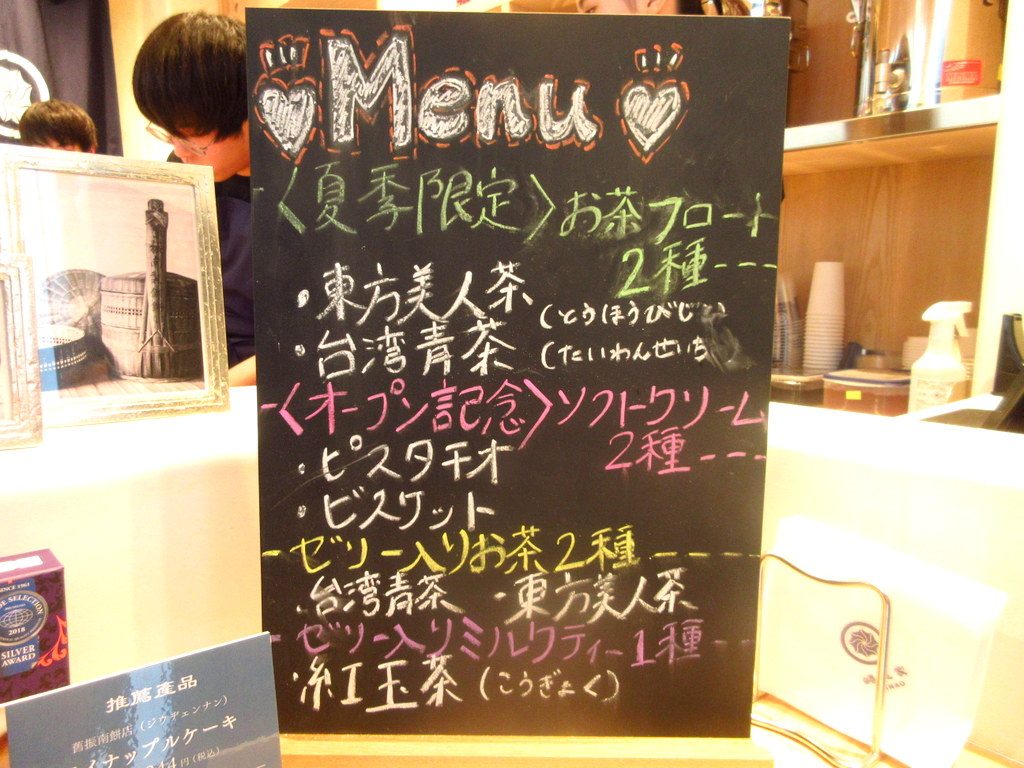 Menu
〈夏季限定〉お茶フロート
2種---
・東方美人茶 (とうほうびじ
・台湾青茶 (たいわんせいち
〈オープン記念〉ソフトクリーム
2種---
・ピスタチオ
・ビスケット
-ゼリー入りお茶2種----
・台湾青茶 ・東方美人茶
-ゼリー入りミルクティー1種--
・紅玉茶(こうぎょく)
SINCE 1961
SELECTION
2018
SILVER
AWARD
推薦產品
舊振南餅店 (ジウヂェンナン)
イナップルケーキ
円(税込)